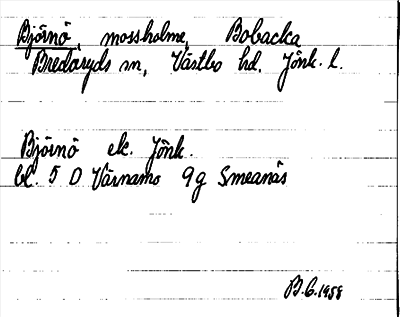 Björnö, mossholme, Bobacka
Bredaryds sn, Västbo hd. Jönk. l.
Björnö ek. Jönk.
bl. 5 D Värnamo 9g Smeanäs
B.G. 1958